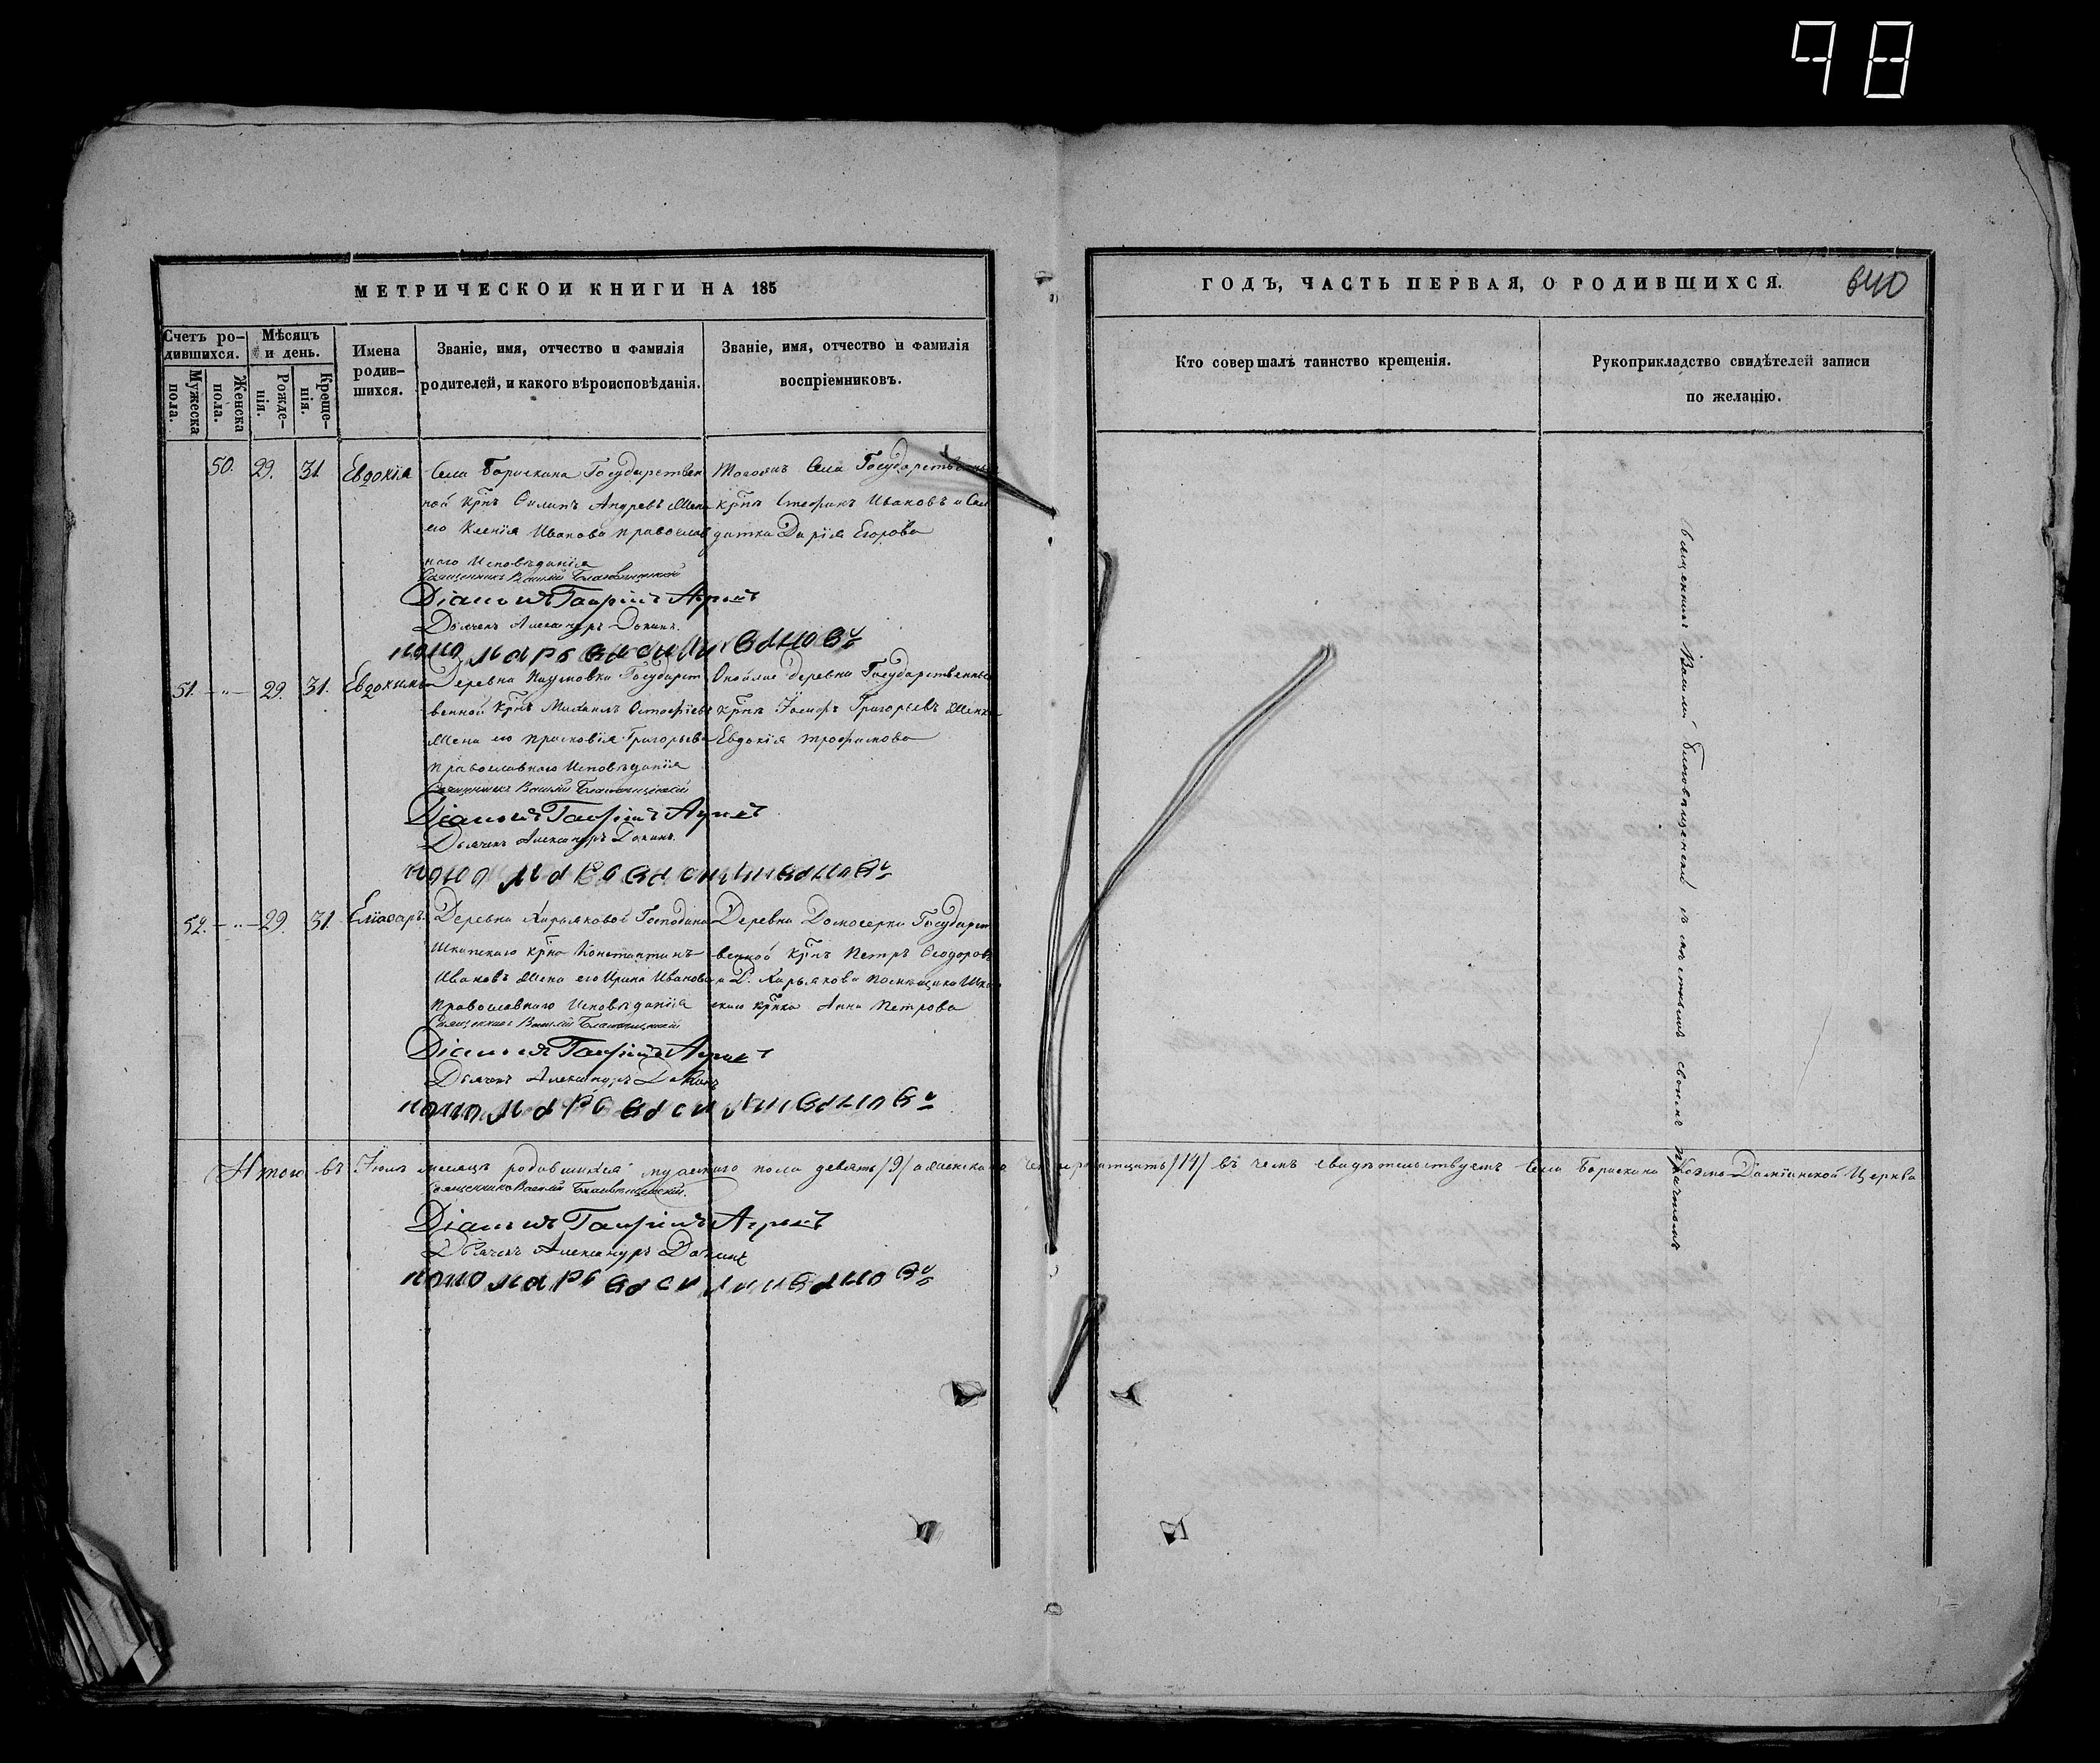 98
МЕТРИЧЕСКОИ КНИГИ НА 185
ГОДЪ, ЧАСТЬ ПЕРВАЯ, О РОДИВШИХСЯ.
640
Счетъ ро-
дившихся.
Мужеска
пола.
Женска
пола.
Мѣсяцъ
и день.
Рожде-
нія.
Креще-
нія.
Имена
родив-
шихся.
Званіе, имя, отчество и фамилія
родителей, и какого вѣроисповѣданія.
Званіе, имя, отчество и фамилія
воспріемниковъ.
Кто совершалъ таинство крещенія.
Рукоприкладство свидѣтелей записи
по желанію.
50. 29. 31. Евдокія
Села Борискина Государствен
ной крнъ Филипъ Андревъ Жена
его Ксенія Иванова православ
наго Исповѣданія
Тогожъ Села Государственный
крнъ Стефанъ Ивановъ и Сол
датка Дарія Егорова
Священникъ Василій Благовѣщенскій
Діаконъ Гавріилъ Агровъ
Дьячекъ Александръ
пономарь василиивановъ
51. 29. 31. Евдокимъ
Деревни Наумовки Государст
венной крнъ Михаилъ
Жена его Прасковія Григорьева
православнаго Исповѣданія
деревни Государственный
крнъ Іосифъ Григорьевъ
Евдокія трофимова
Священникъ Василій Благовѣщенскій
Діаконъ Гавріилъ Агровъ
Дьячекъ Александръ
пономарь василиивановъ
52. 29. 31. Еліазаръ.
Деревни Кирьяковой Господина
крна Константинъ
Ивановъ Жена его Ирина Иванова
православнаго Исповѣданія
Деревни Государст
венной крнъ Петръ Ѳеодоровъ
и Д. Кирьякова помѣщика
крнка Анна Петрова
Священникъ Василій Благовѣщенскій
Діаконъ Гавріилъ Агровъ
Дьячекъ Александръ
пономарь василиивановъ
Итого въ Іюлѣ месяцѣ родившихся мужескаго пола девять /9/ а женскаго четырнатцать /14/ въ чемъ свидѣтельствуетъ Села Борискина Козмо-Даміанской Церкви
Священникъ Василій Благовѣщенскій съ своимъ причтомъ
Священникъ Василій Благовѣщенскій.
Діаконъ Гавріилъ Агровъ
Дьячекъ Александръ
пономарь василиивановъ